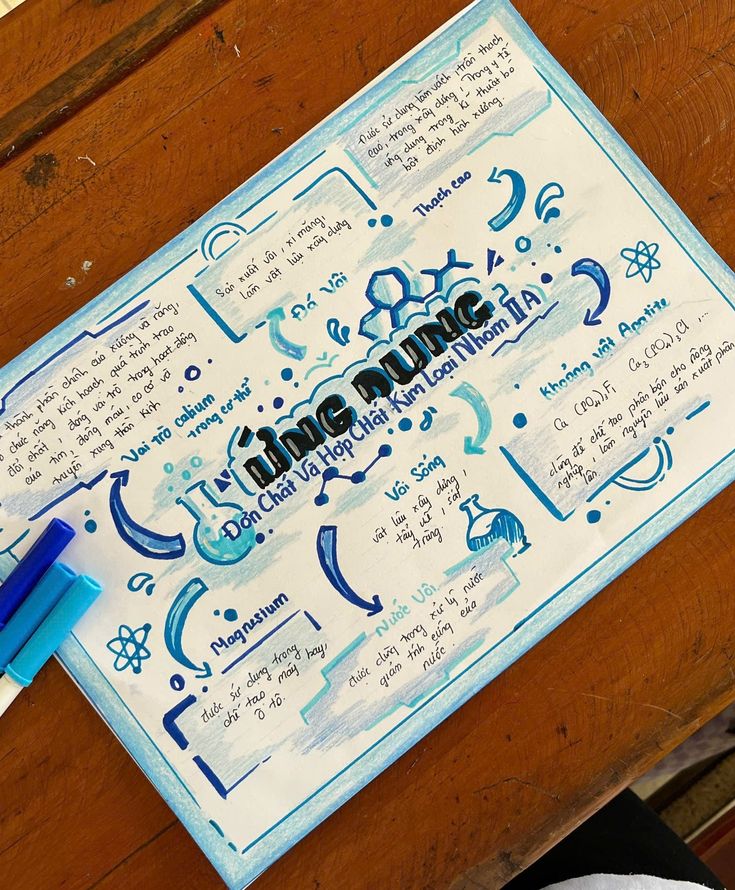 ỨNG DỤNG
Đơn Chất Và Hợp Chất Kim Loại Nhóm IIA
Thạch cao
Được sử dụng làm vách, trần thạch
cao, trong xây dựng. Trong y tế
ứng dụng trong kĩ thuật bó
bột định hình xương.
Đá Vôi
Sản xuất vôi, xi măng,
làm vật liệu xây dựng
Vai trò calium
trong cơ thể
thành phần chính của xương và răng,
chức năng kích hoạch quá trình trao
đổi chất, đóng vai trò trong hoạt động
của tim, đông máu, co cơ và
truyền xung thần kinh
Khoáng vật Apatite
Ca (PO4)3F, Ca5(PO4)3Cl, ...
dùng để chế tạo phân bón cho nông
nghiệp, làm nguyên liệu sản xuất phân
lân.
Vôi Sống
vật liệu xây dựng,
tẩy uế, sát
trùng.
Nước Vôi
được dùng trong xử lý nước
giảm tính cứng của
nước.
Magnesium
được sử dụng trong
chế tạo máy bay,
ô tô.